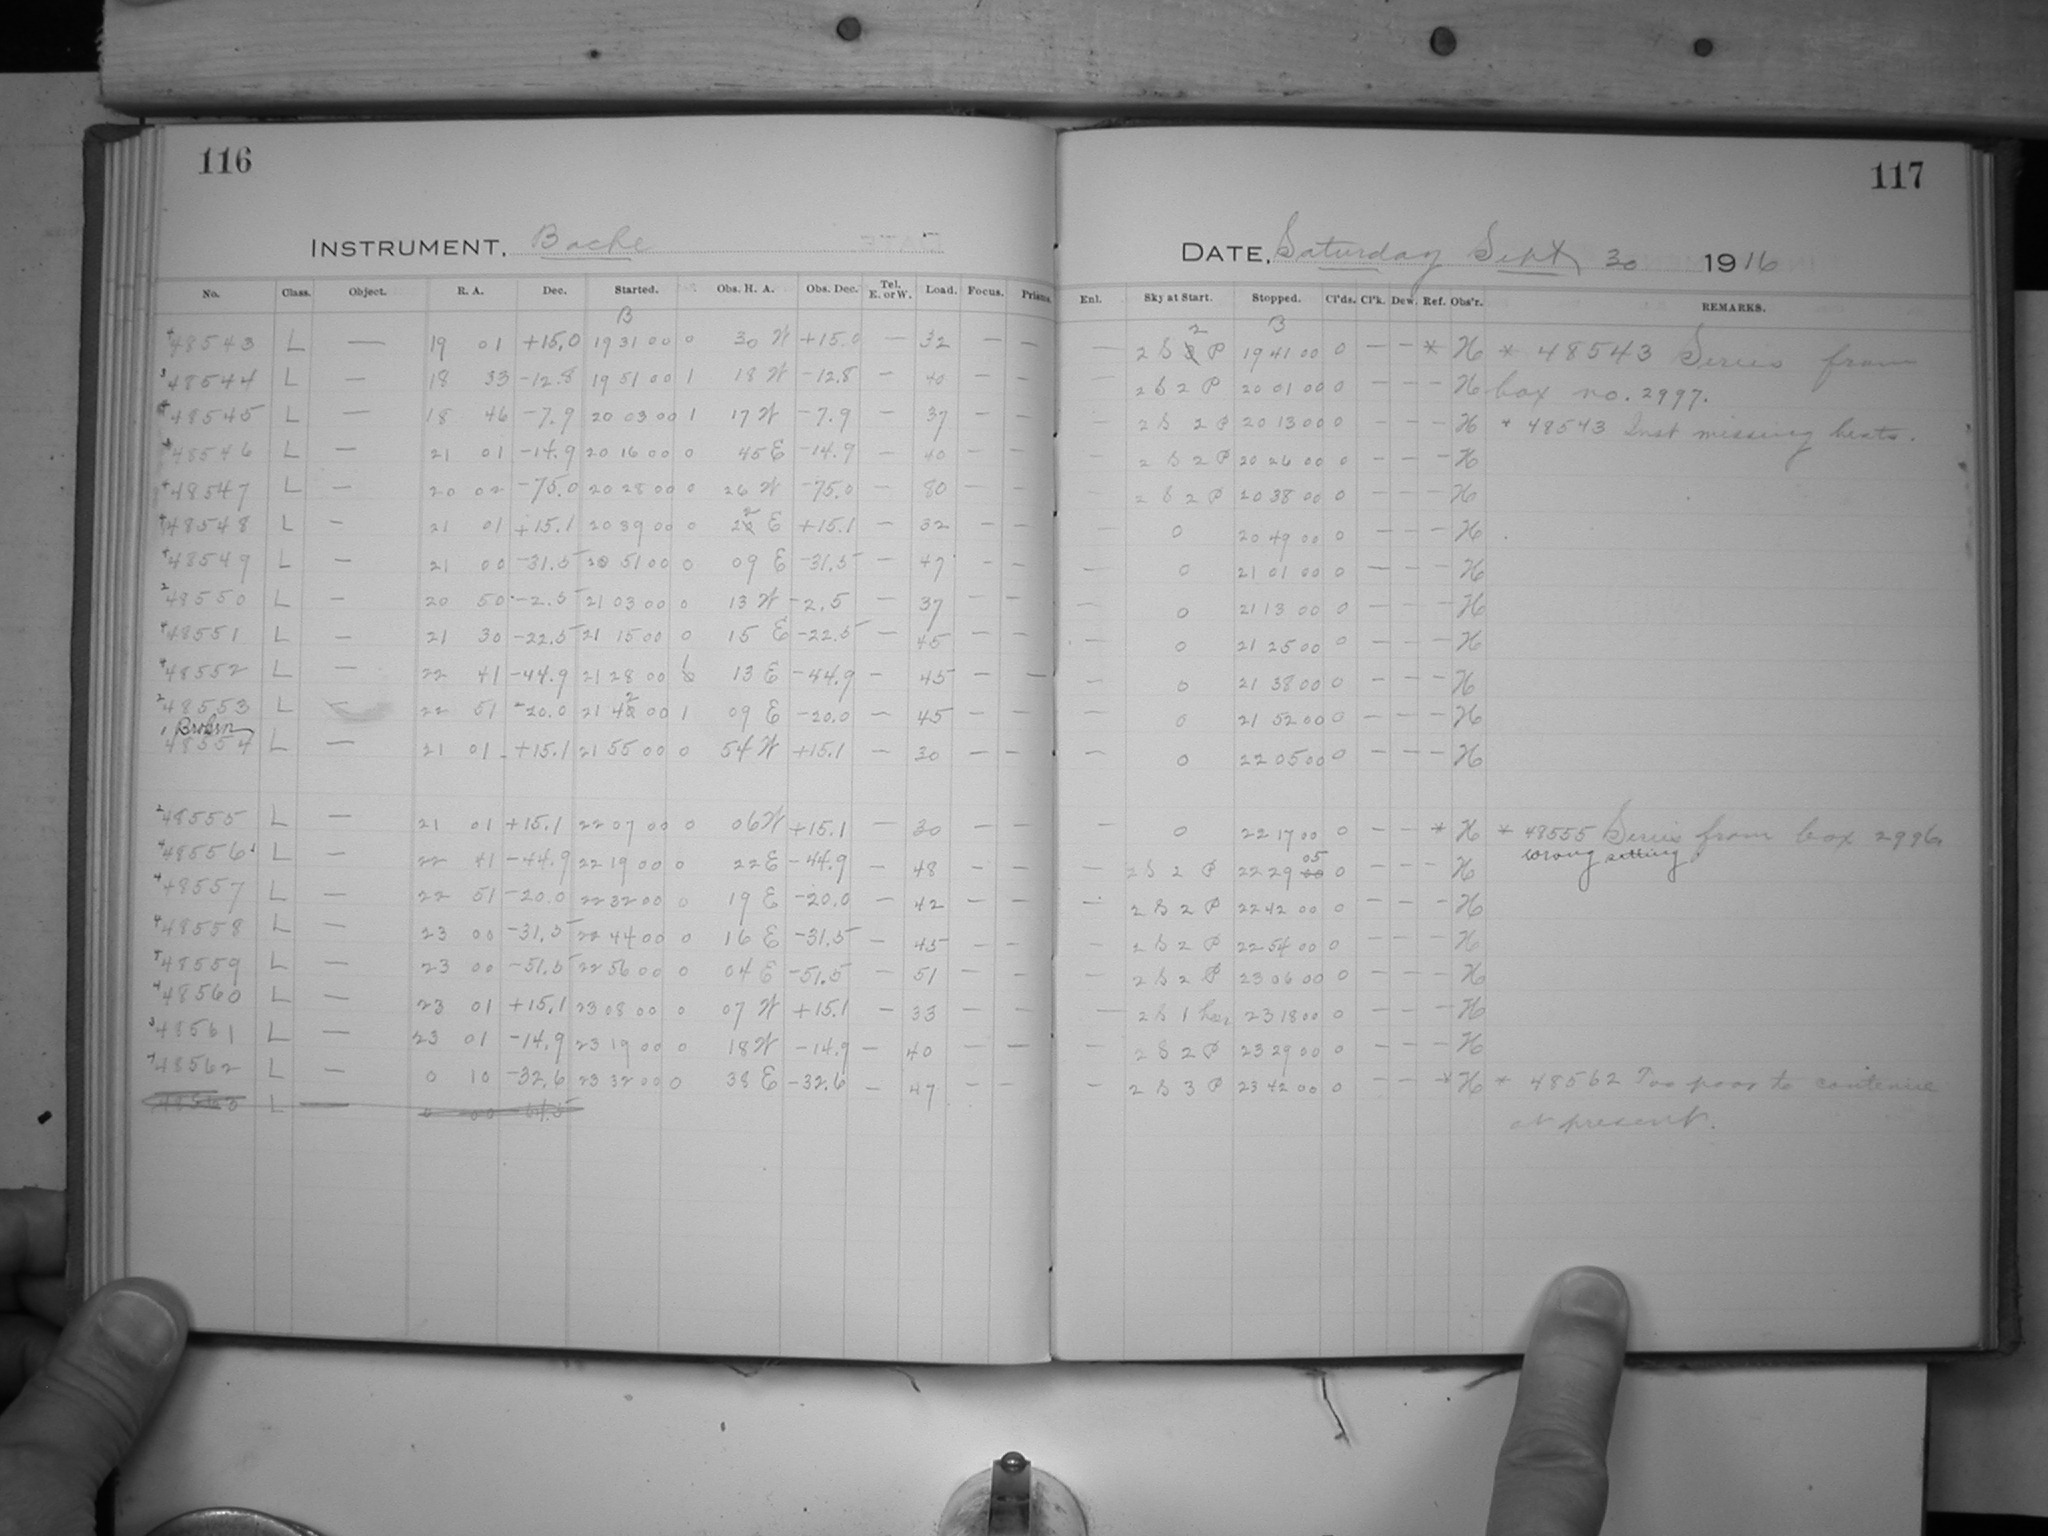 116
INSTRUMENT, Bache
No. Class. Object. R. A. Dec. Started. Obs. H. A. Obs. Dec. Tel. E. or W. Load. Focus. Prisms
B
4 48543 L — 19 01 +15.0 19 31 00 0 30 W +15.0 — 32 — —
3 48544 L — 18 33 -12.8 19 51 00 1 18 W -12.8 — 40 — —
4 48545 L — 18 46 -7.9 20 03 00 1 17 W -7.9 — 37 — —
48546 L — 21 01 -14.9 20 16 00 0 45 E -14.9 — 40 — —
4 48547 L — 20 02 -75.0 20 28 00 0 26 W -75.0 — 80 — —
4 48548 L — 21 01 +15.1 20 39 00 0 22 E +15.1 — 32 — —
4 48549 L — 21 00 -31.5 20 51 00 0 09 E -31.5 — 47 — —
2 48550 L — 20 50 -2.5 21 03 00 0 13 W -2.5 — 37 — —
4 48551 L — 21 30 -22.5 21 15 00 0 15 E -22.5 — 45 — —
4 48552 L — 22 41 -44.9 21 28 00 1 13 E -44.9 — 45 — —
2 48553 L — 22 51 -20.0 21 42 00 1 09 E -20.0 — 45 — —
Broken
1 48554 L — 21 01 +15.1 21 55 00 0 54 W +15.1 — 30 — —
2 48555 L — 21 01 +15.1 22 07 00 0 06 W +15.1 — 30 — —
4 48556 L — 22 41 -44.9 22 19 00 0 22 E -44.9 — 48 — —
4 48557 L — 22 51 -20.0 22 32 00 0 19 E -20.0 — 42 — —
4 48558 L — 23 00 -31.5 22 44 00 0 16 E -31.5 — 45 — —
5 48559 L — 23 00 -51.5 22 56 00 0 04 E -51.5 — 51 — —
4 48560 L — 23 01 +15.1 23 08 00 0 07 W +15.1 — 33 — —
3 48561 L — 23 01 -14.9 23 19 00 0 18 W -14.9 — 40 — —
48562 L — 0 10 -32.6 23 32 00 0 38 E -32.6 — 47 — —
48563 L — 0 00
117
DATE, Saturday Sept 30 1916
Enl. Sky at Start. Stopped. Cl'ds. Cl'k. Dew. Ref. Obs'r. REMARKS.
B
— 2 S 2 P 19 41 00 0 — — * H * 48543 Series from
— 2 S 2 P 20 01 00 0 — — — H box no. 2997.
— 2 S 2 P 20 13 00 0 — — — H * 48543 Inst missing beats.
— 2 S 2 P 20 26 00 0 — — — H
— 2 S 2 P 20 38 00 0 — — — H
— 0 20 49 00 0 — — — H
— 0 21 01 00 0 — — — H
— 0 21 13 00 0 — — — H
— 0 21 25 00 0 — — — H
— 0 21 38 00 0 — — — H
— 0 21 52 00 0 — — — H
— 0 22 05 00 0 — — — H
— 0 22 17 00 0 — — * H * 48555 Series from box 2996.
— 2 S 2 P 22 29 05 0 — — — H wrong setting
— 2 S 2 P 22 42 00 0 — — — H
— 2 S 2 P 22 54 00 0 — — — H
— 2 S 2 P 23 06 00 0 — — — H
— 2 S 1 23 18 00 0 — — — H
— 2 S 2 P 23 29 00 0 — — — H
— 2 S 3 P 23 42 00 0 — — * H * 48562 Too poor to continue
at present.